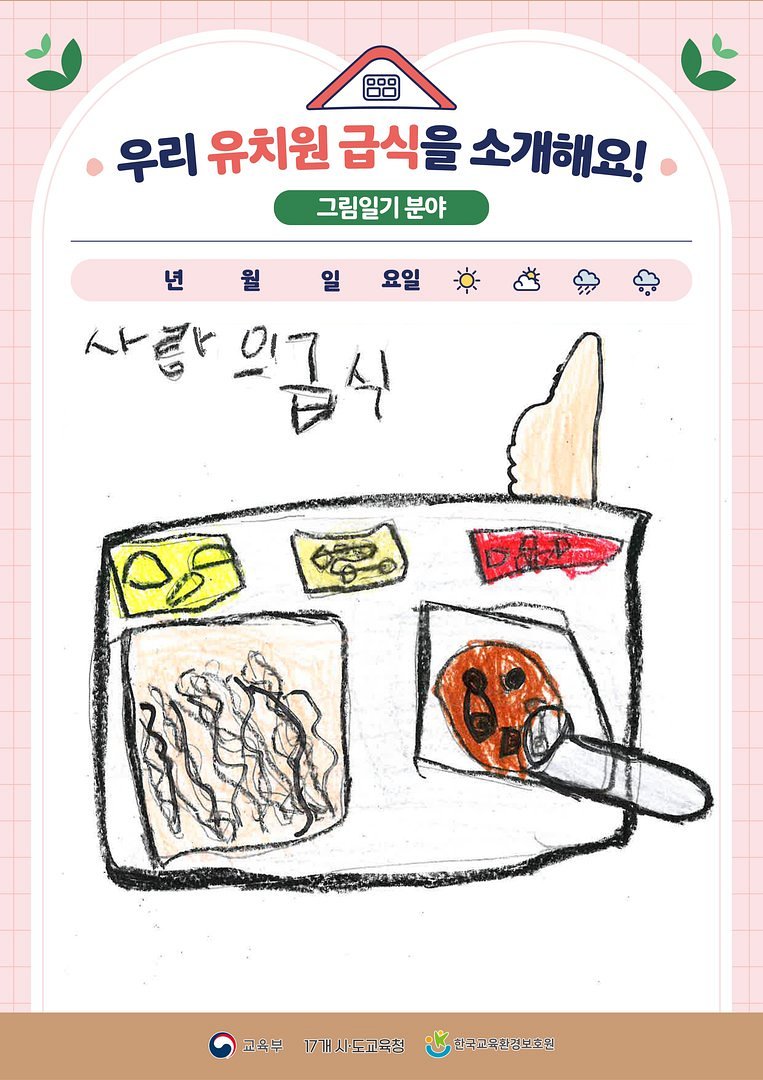 우리 유치원 급식을 소개해요!
그림일기 분야
년 월 일 요일
사랑의급식
교육부 17개 시·도교육청 한국교육환경보호원